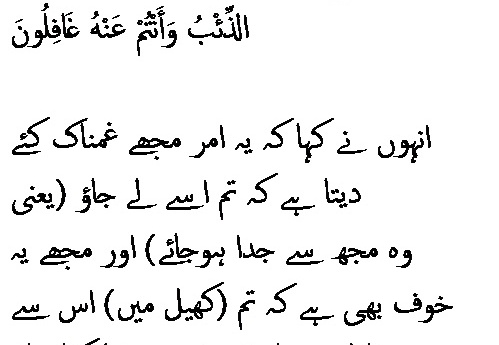 الذِّئْبُ وَأَنتُمْ عَنْهُ غَافِلُونَ
انہوں نے کہا کہ یہ امر مجھے غمناک کئے
دیتا ہے کہ تم اسے لے جاؤ (یعنی
وہ مجھ سے جدا ہوجائے) اور مجھے یہ
خوف بھی ہے کہ تم (کھیل میں) اس سے